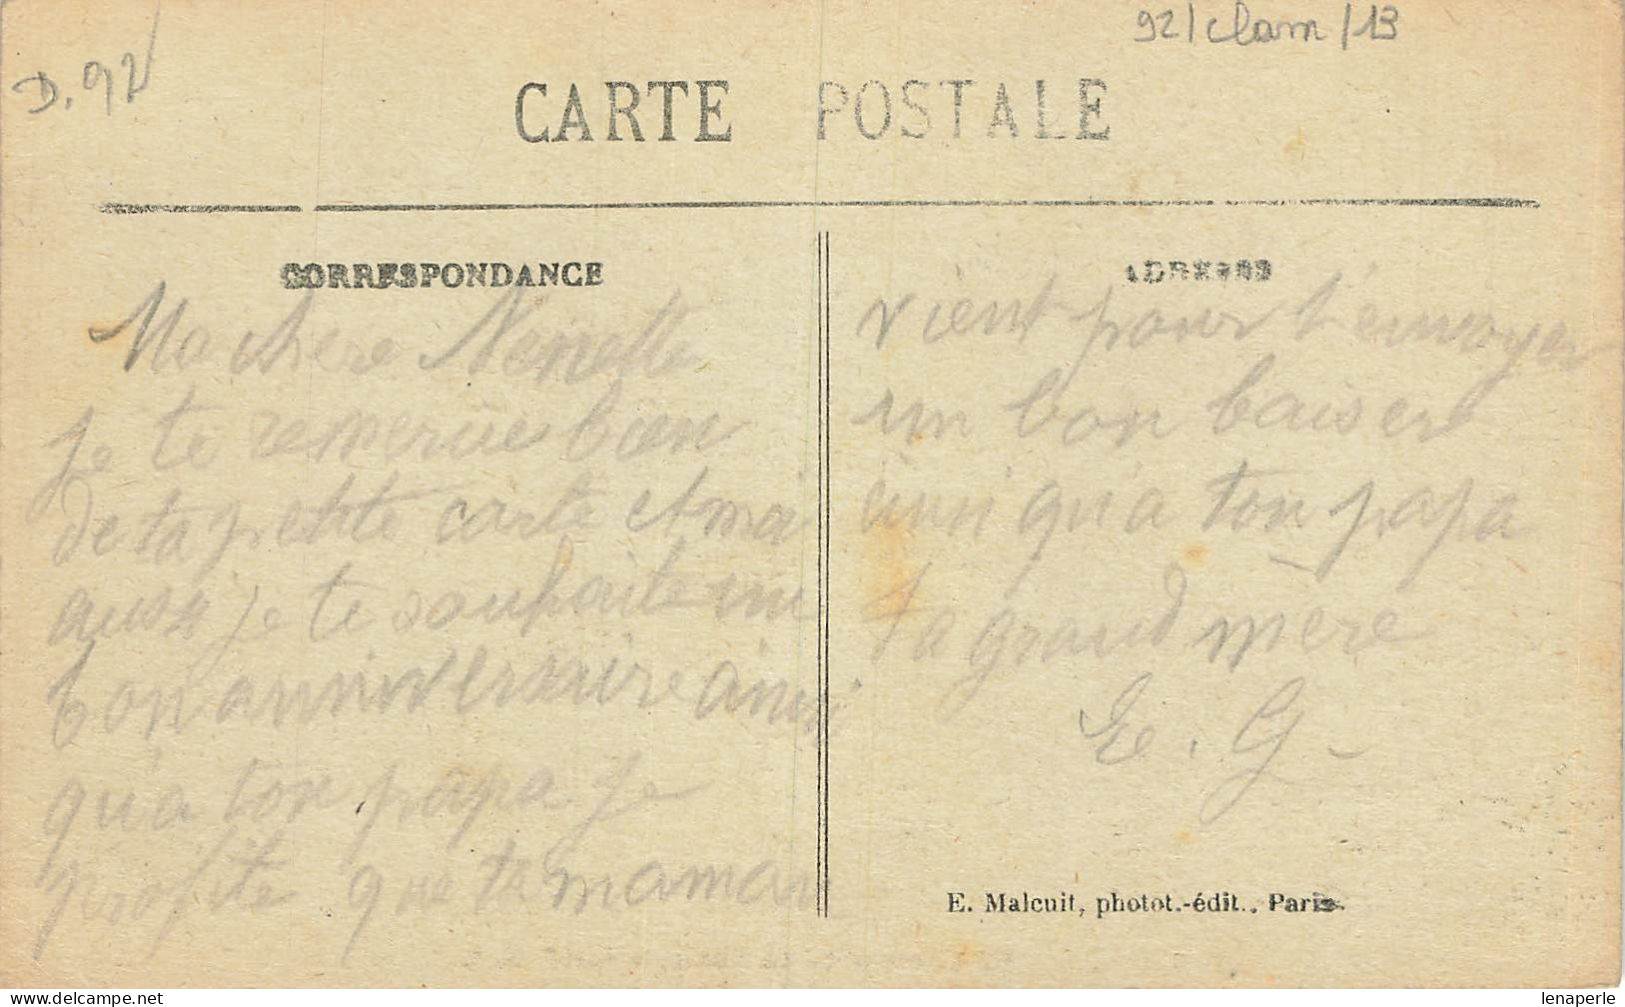 92/clam/13
D. 92
CARTE POSTALE
CORRESPONDANCE
Ma chere Nenette
je te remercie bien
de ta petite carte et moi
aussi je te souhaite un
bon anniversaire ainsi
qu'a ton papa je
profite que ta maman
ADRESSE
vient pour t'envoyer
un bon baiser
ainsi qu'a ton papa
ta grand mere
E. G.
E. Malcuit, photot.-édit., Paris.
lenaperle